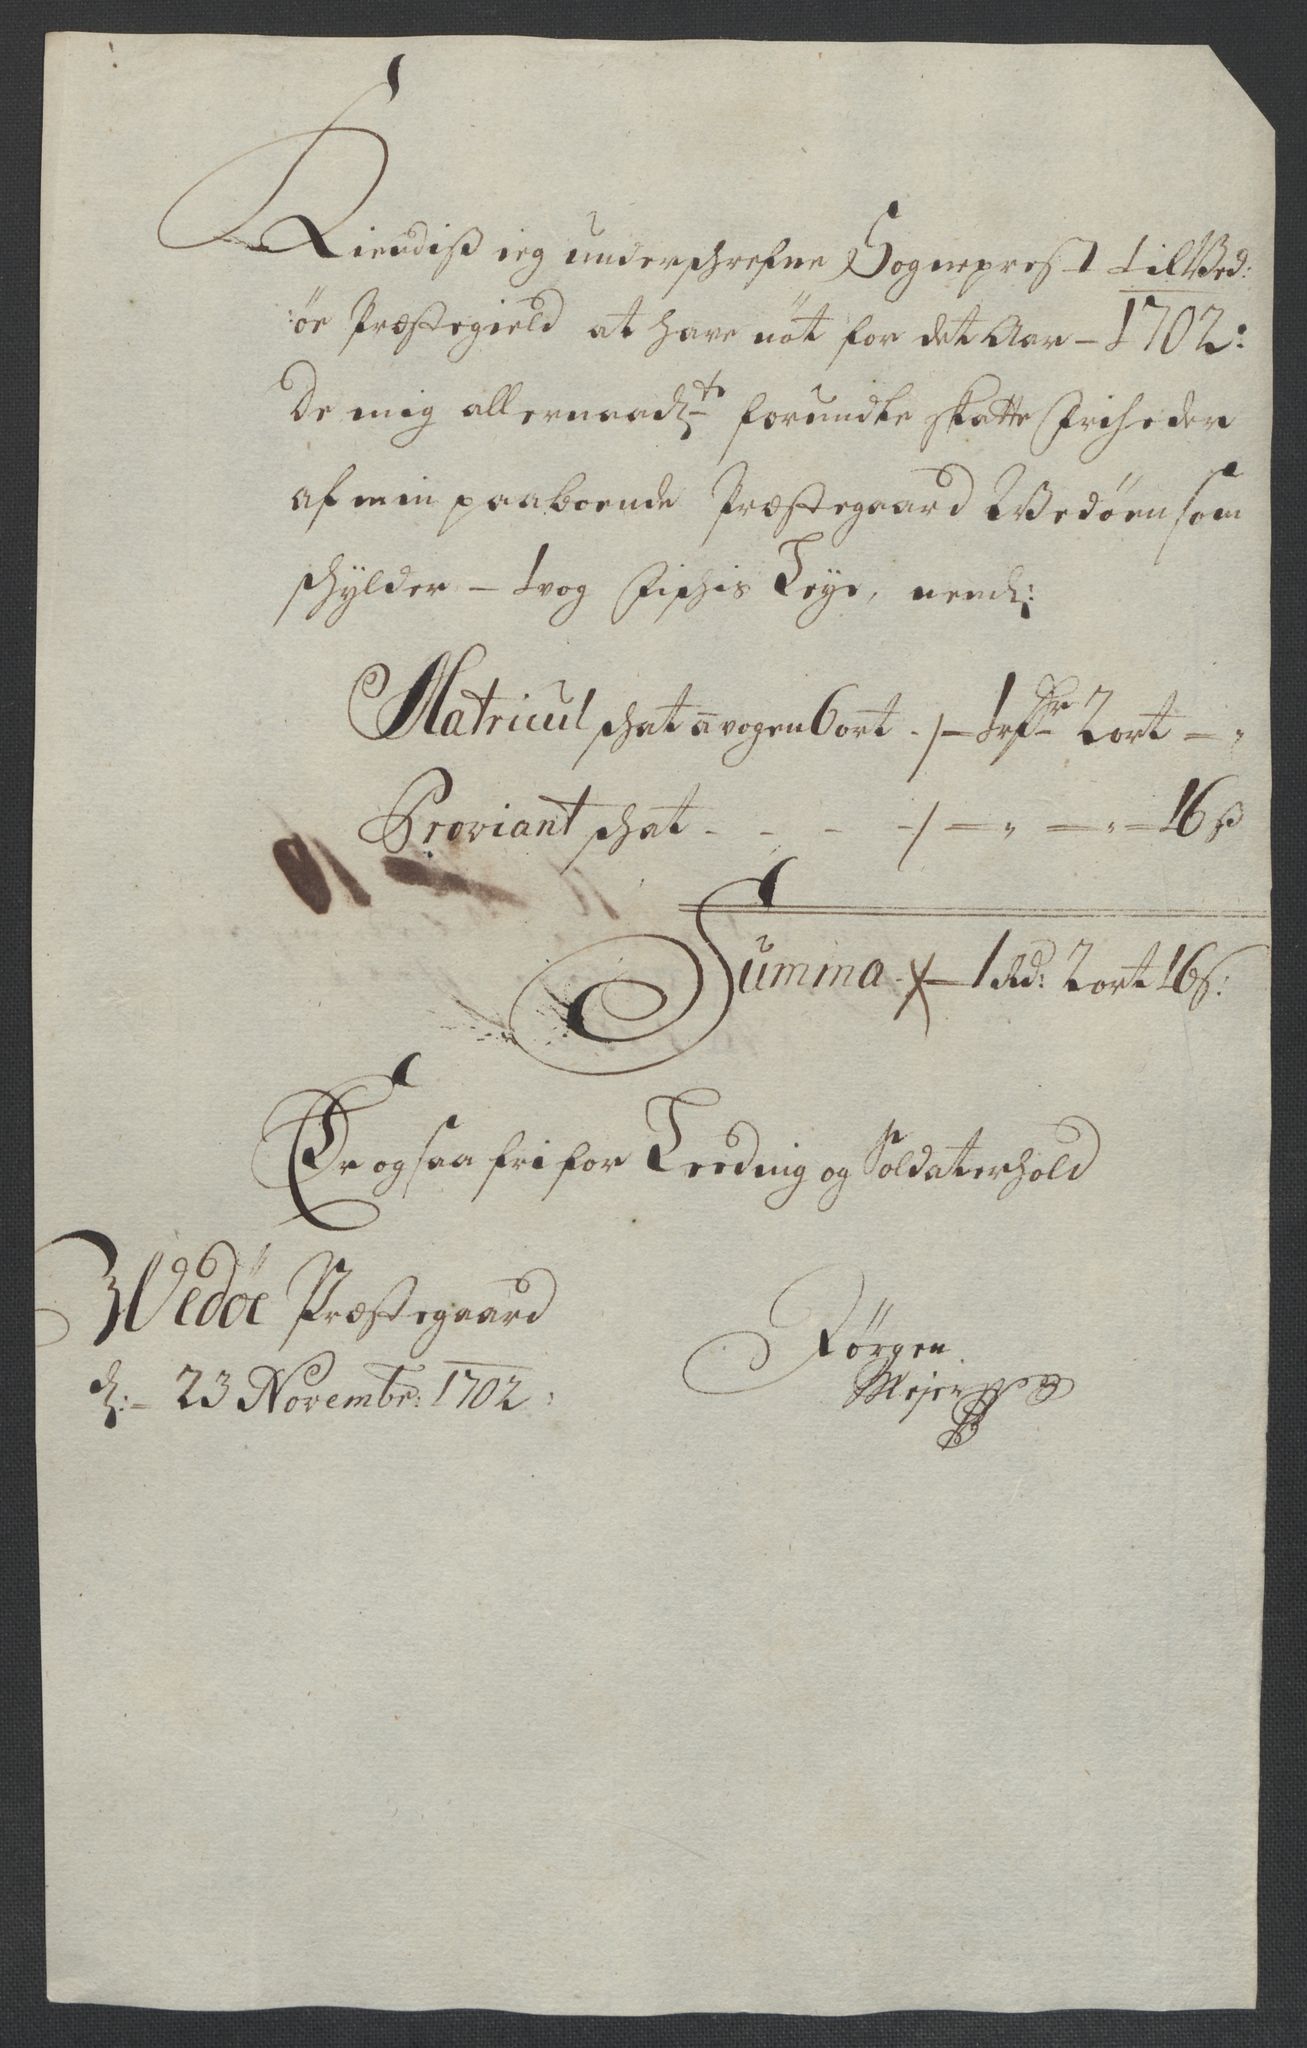 Kiendiß ieg underschrefne Sogneprest til Wed:
:öe Præstegield at have nöt for det Aar - 1702:
De mig allernaadte forundte skatte Friheder
af min paaboende Præstegaard Wedöen som
schylder - 1 vog Fischis Leye, neml:
Matricul schat a vogen 6 ort ./. 1 rdr 2 ort — "
Proviant schat - - - - ./. — " — " — 16 ß
Summa - 1 Rd: 2 ort 16 s:
Er og saa fri for Leeding og Soldaterhold
Wedöe Præstegaard
d: - 23 Novembr: 1702:
Jörgen
Mejer